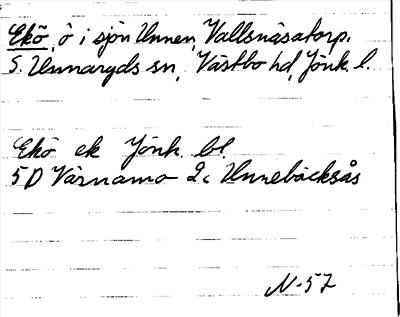 Ekö, ö i sjön Unnen, Vallsnäsatorp.
S. Unnaryds sn, Västbo hd, Jönk. l.
Ekö ek Jönk. bl.
5D Värnamo 2c Unnebäcksås
N-57